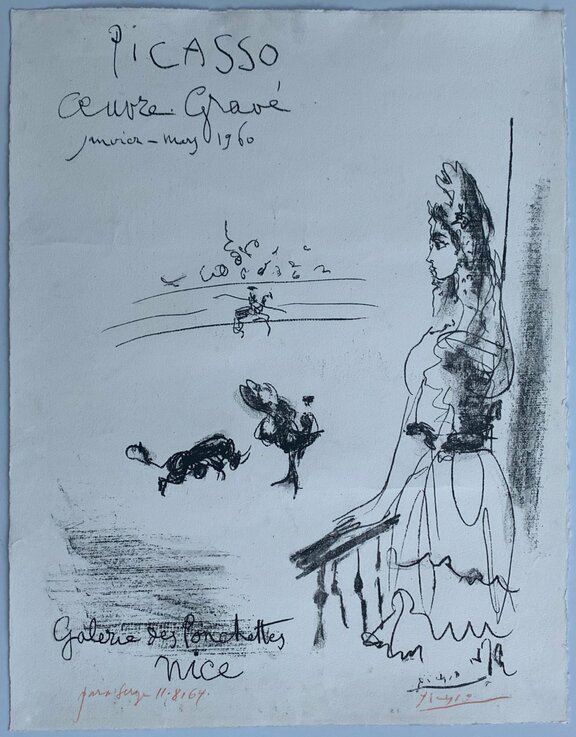 PICASSO
Œuvre Gravé
janvier - mars 1960
Galerie des Ponchettes
Nice
para Serge 11.8.64.
Picasso
Picasso